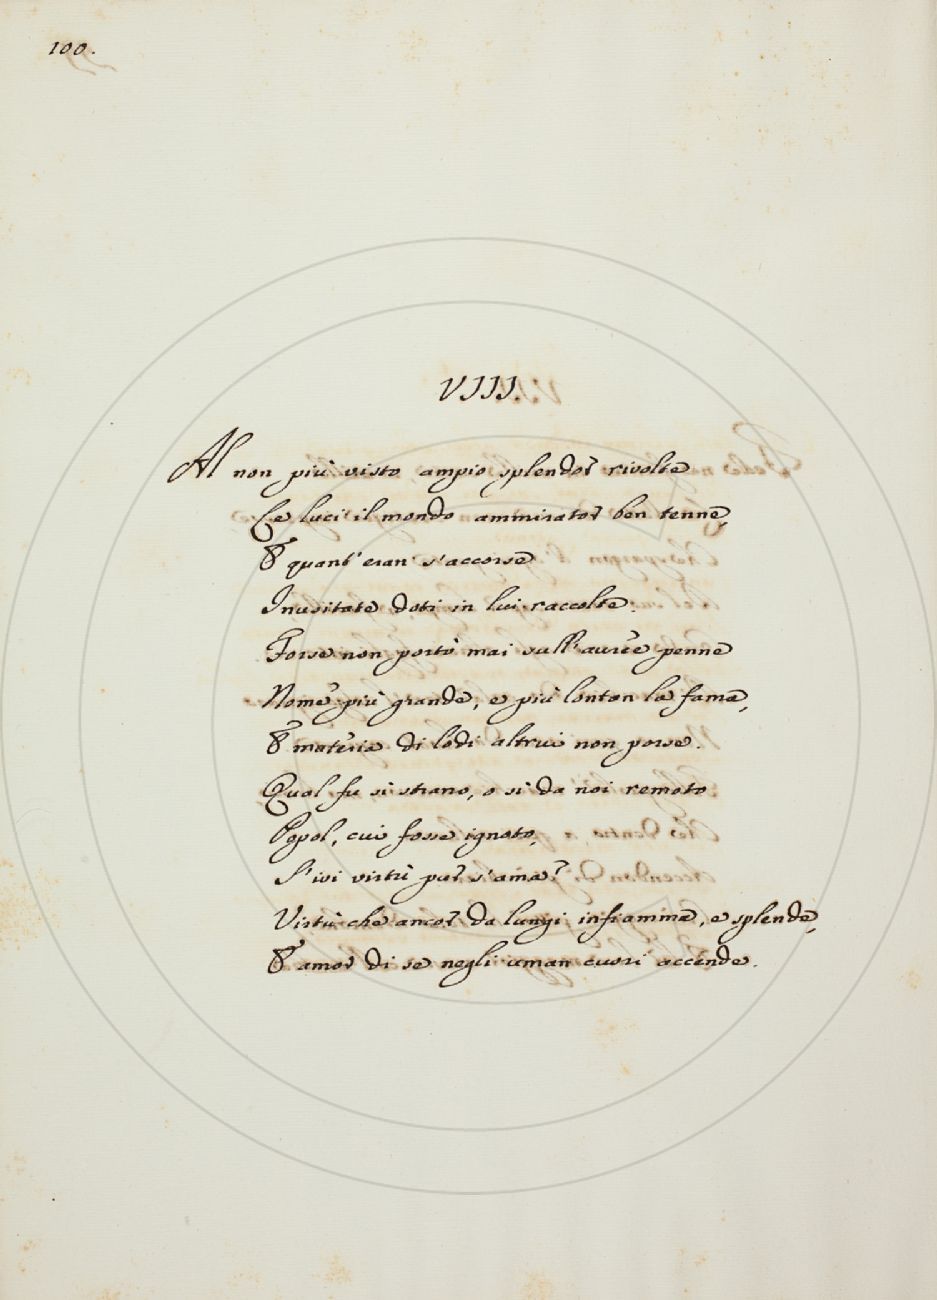 100.
VIII.
Al non più visto ampio splendor rivolte
Le luci il mondo ammirator ben tenne,
E quant'eran s'accorse
Inusitate doti in lui raccolte.
Forse non portò mai sull'auree penne
Nome più grande, e più lontan la fama,
E materia di lodi altrui non porse.
Qual fu sì strano, o sì da noi remoto
Popol, cui fosse ignoto,
S'ivi virtù pur s'ama?
Virtù che ancor da lungi infiamma, e splende,
E amor di se negli uman cuori accende.